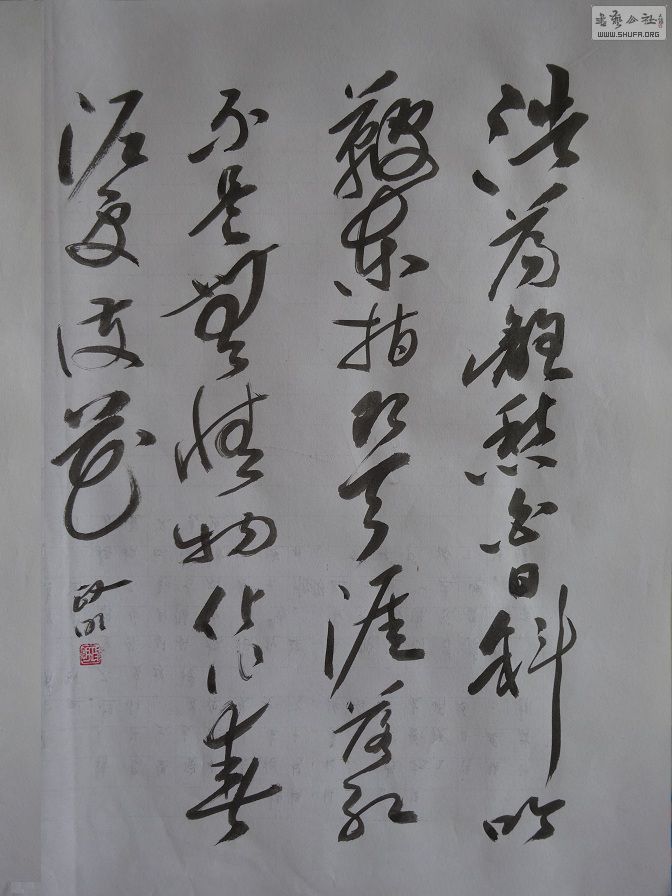 浩蕩離愁白日斜吟
鞭東指即天涯落紅
不是無情物化作春
泥更護花
書藝公社
WWW.SHUFA.ORG